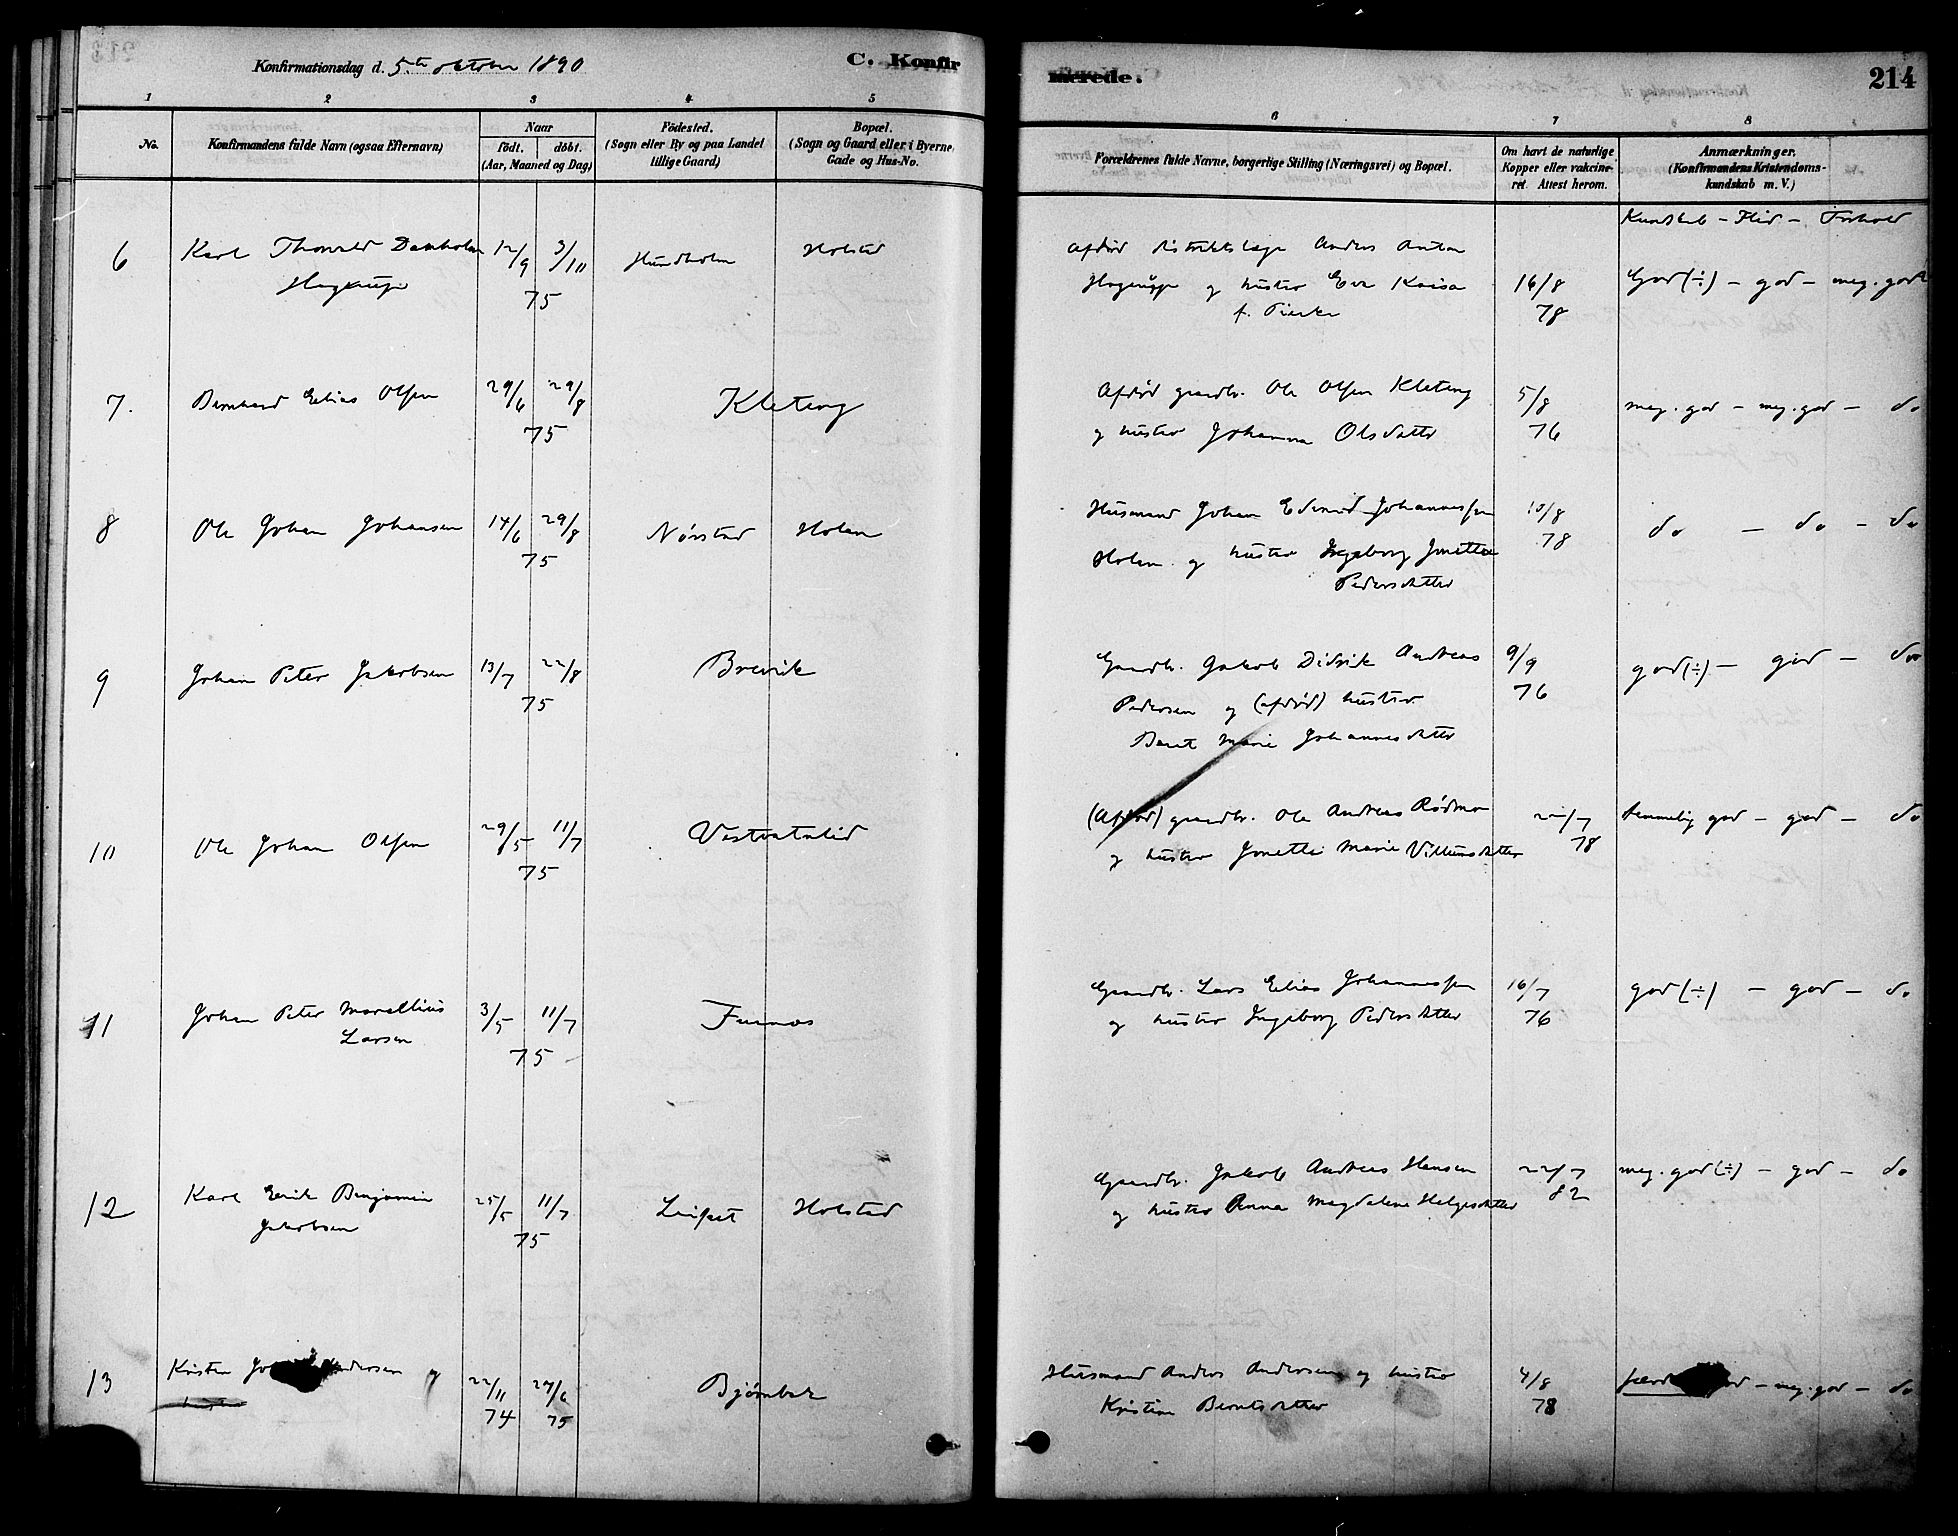 Konfirmationsdag d. 5te oktober 1890
C. Konfir
1 2 3 4 5
No.
Konfirmandens fulde Navn (ogsaa Efternavn)
Naar
født. døbt.
(Aar, Maaned og Dag)
Födested.
(Sogn eller By og paa Landet
tillige Gaard)
Bopæl.
(Sogn og Gaard eller i Byerne,
Gade og Hus-No.
6 Karl Thorvald Danholm 12/9 3/10 Hundholm Holstad
75
7. Bernhard Elias Olsen 29/6 29/8 Kleteng
75
8 Ole Johan Johansen 14/6 29/8 Nørstad Holen
75
9 Johan Peter Jakobsen 13/7 22/8 Brevik
75
10 Ole Johan Olsen 29/5 11/7 Vestvatnlid
75
11 Johan Peter Marellius 3/5 11/7 Furnes
Larsen
75
12 Karl Erik Benjamin 25/5 11/7 Holstad
Jakobsen
75
13 Kristen Andersen 22/11 27/6 Bjørnbak
74 75
merede.
214
6 7 8
Forældrenes fulde Navne, borgerlige Stilling (Næringsvei) og Bopæl.
Om havt de naturlige
Kopper eller vakcine-
ret. Attest herom.
Anmærkninger,
(Konfirmandens Kristendoms-
kundskab m. V.)
Kundskab - Flid - Forhold
Afdød distriktslæge Anders Anton
og hustru Eva Kaisa 16/8 God(÷) - god - meg. godt
f. 78
Afdød gaardbr. Ole Olsen Kleteng 5/8 meg. god - meg. god - do
og hustru Johanna Olsdatter 76
Husmand Johan Edvard Johannessen 10/8 do - do - do
Holen og hustru Ingeborg Jonette 78
Pedersdatter
Gaardbr. Jakob Didrik Andreas 9/9 god(÷) - god - do
Pedersen og (afdød) hustru 76
Beret Marie Johannesdatter
(Afdød) gaardbr. Ole Andreas Rødmo 22/7 temmelig god - god - do
og hustru Jonette Marie Villumsdatter 78
Gaardbr. Lars Elias Johannessen 16/7 god(÷) - god - do
og hustru Ingeborg Pedersdatter 76
Gaardbr. Jakob Andreas Hansen 22/7 meg. god(÷) - god - do
og hustru Anna Magdalena Helgesdatter 82
Husmand Anders Andersen og hustru 4/8 - meg. god - do
Kristine Berntsdatter 78